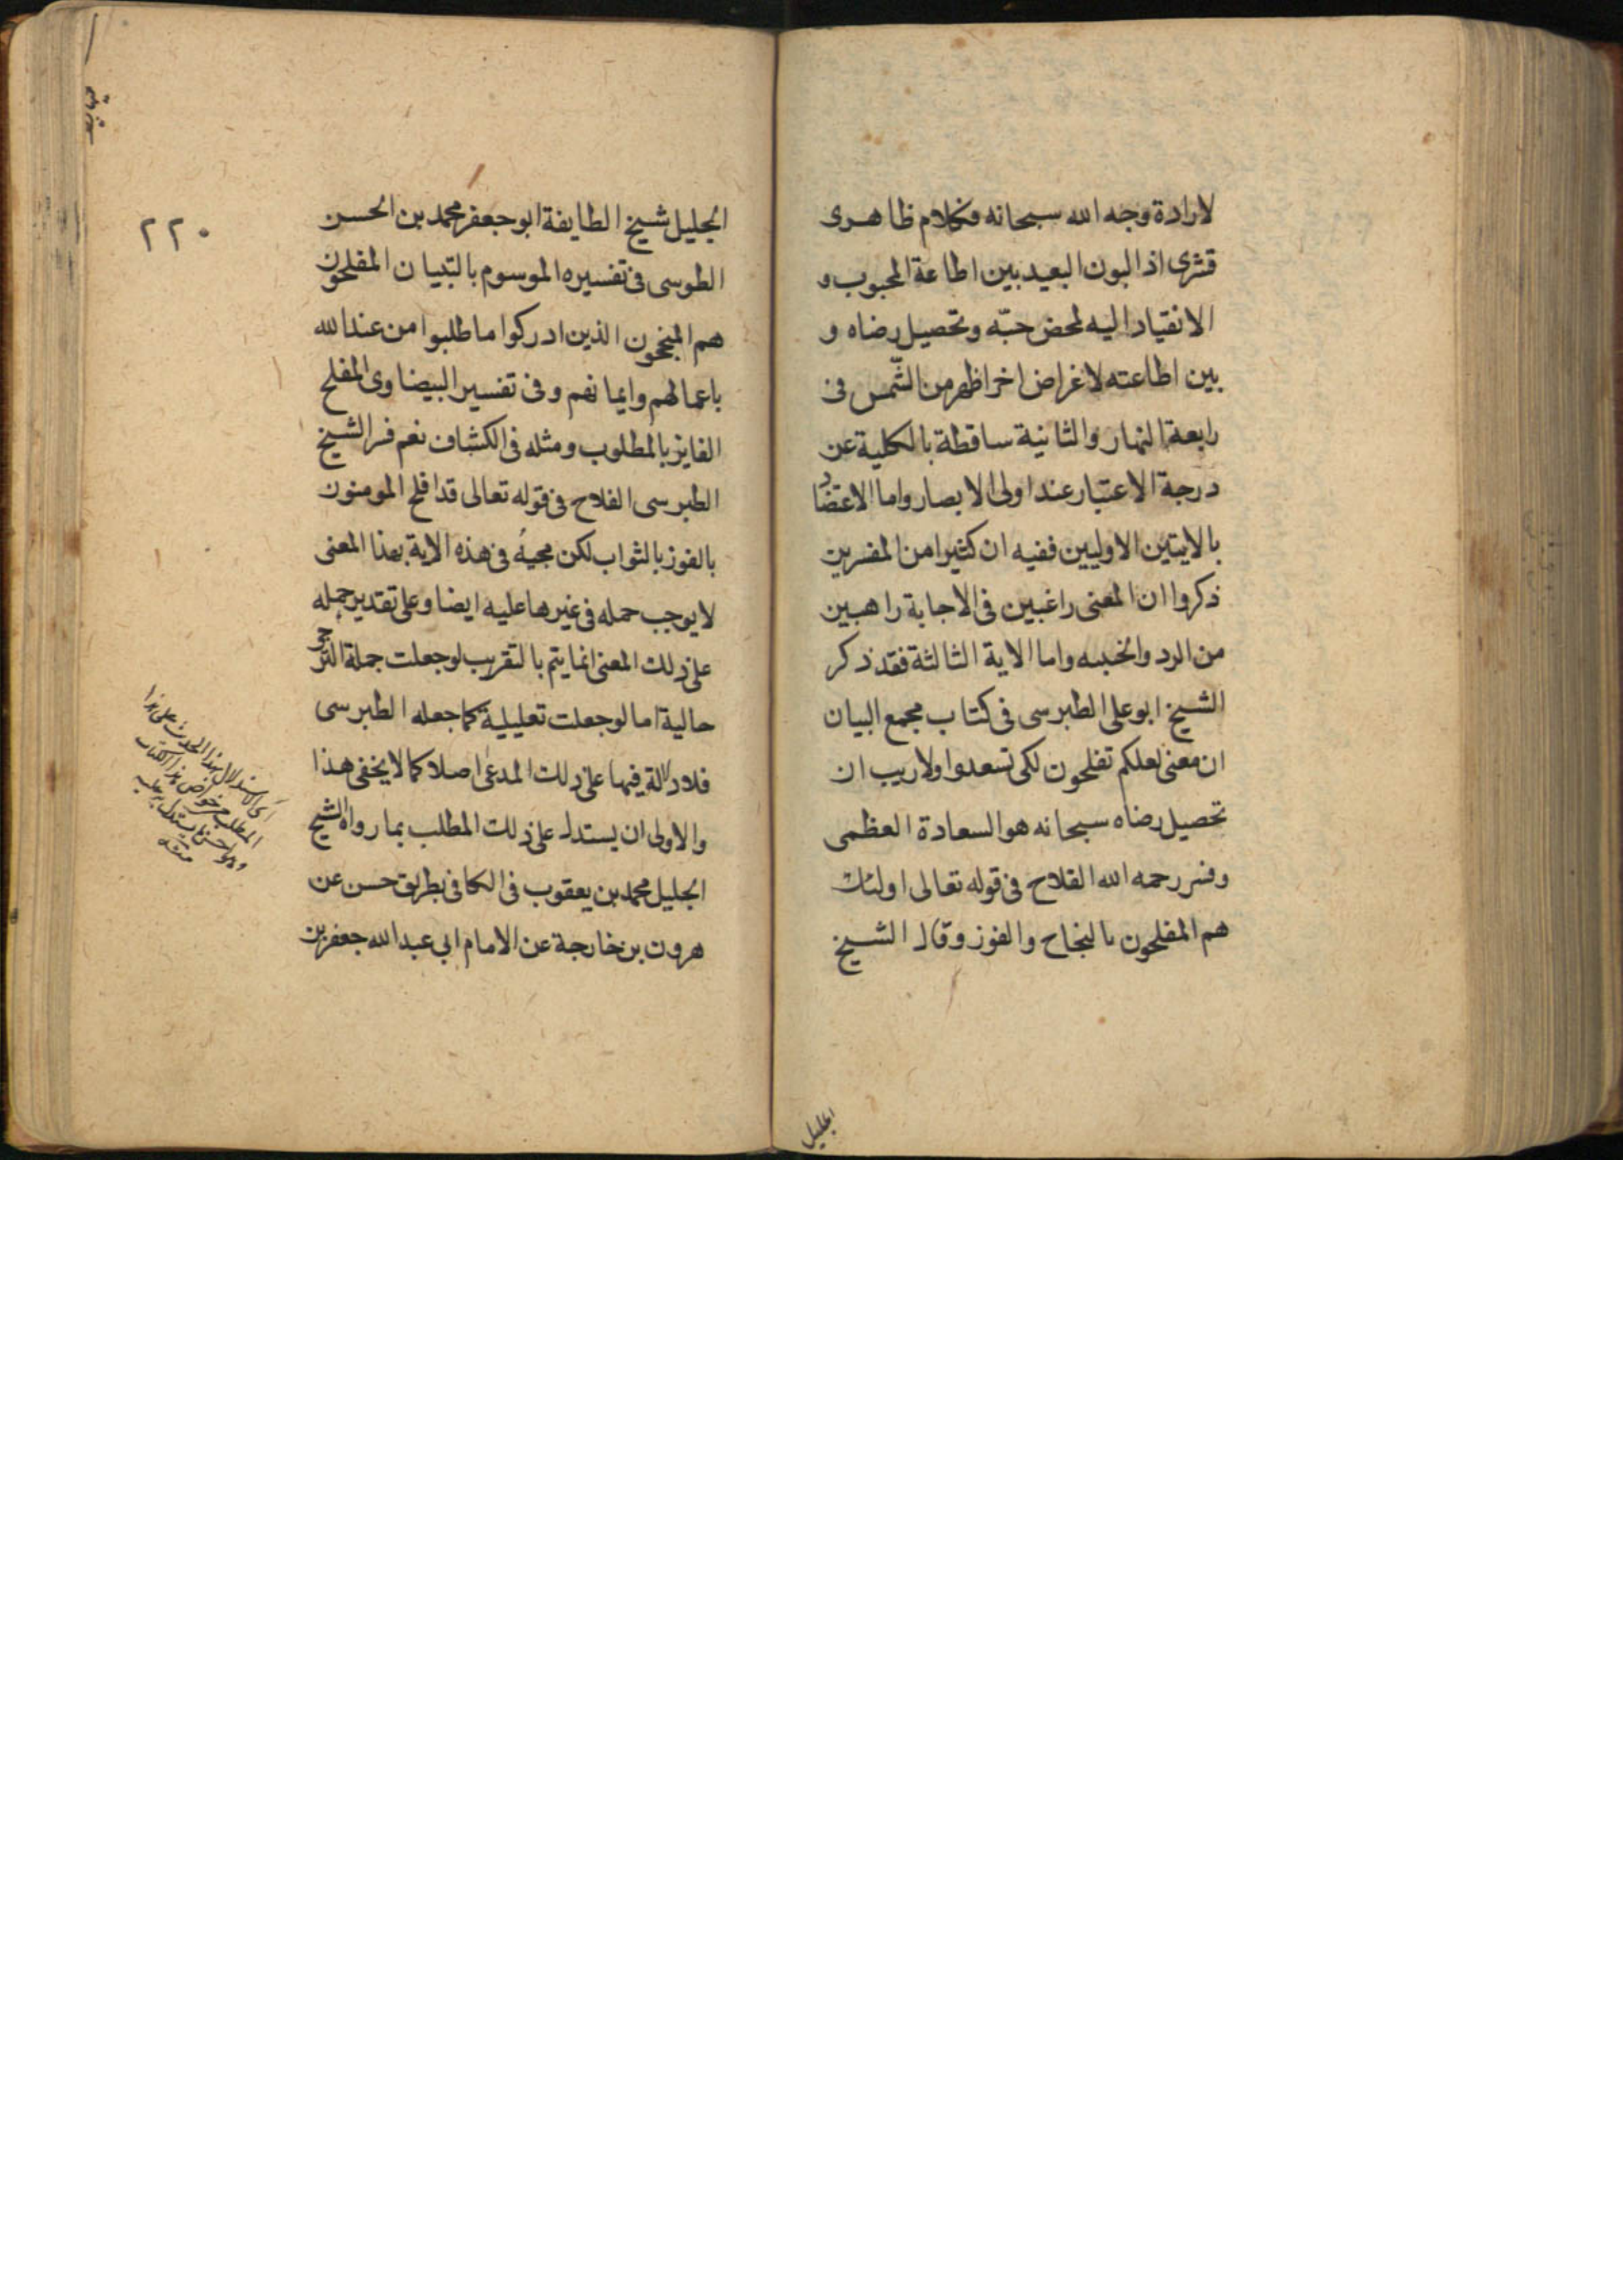 لارادة وجه الله سبحانه فكلام ظاهرى
قشرى اذ البون البعيد بين اطاعة المحبوب و
الانقياد اليه لمحض حبّه وتحصيل رضاه و
بين اطاعته لاغراض اخر اظهر من الشّمس فى
رابعة النهار والثانية ساقطة بالكلية عن
درجة الاعتبار عند اولى الابصار واما الاعتضاد
بالايتين الاوليين ففيه ان كثيرا من المفسرين
ذكروا ان المعنى راغبين فى الاجابة راهبين
من الرد والخيبه واما الاية الثالثة فقد ذكر
الشيخ ابو على الطبرسى فى كتاب مجمع البيان
ان معنى لعلكم تفلحون لكى تسعدوا ولاريب ان
تحصيل رضاه سبحانه هو السعادة العظمى
وفسر رحمه الله الفلاح فى قوله تعالى اولئك
هم المفلحون بالنجاح والفوز وقال الشيخ
الجليل
٢٢٠
الجليل شيخ الطايفة ابو جعفر محمد بن الحسن
الطوسى فى تفسيره الموسوم بالتبيان المفلحون
هم المنجحون الذين ادركوا ما طلبوا من عند الله
باعمالهم وايمانهم وفى تفسير البيضاوى المفلح
الفايز بالمطلوب ومثله فى الكشاف نعم فسر الشيخ
الطبرسى الفلاح فى قوله تعالى قد افلح المومنون
بالفوز بالثواب لكن مجيئه فى هذه الاية بهذا المعنى
لا يوجب حمله فى غيرها عليه ايضا وعلى تقدير حمله
على ذلك المعنى انما يتم بالتقريب لو جعلت جملة الترجى
حالية اما لو جعلت تعليلية كما جعله الطبرسى
فلا دلالة فيها على ذلك المدعى اصلا كما لا يخفى هذا
والاولى ان يستدل على ذلك المطلب بما رواه الشيخ
الجليل محمد بن يعقوب فى الكافى بطريق حسن عن
هرون بن خارجة عن الامام ابى عبد الله جعفر بن
الاستدلال بهذا الحديث على هذا
المطلب من خواص هذا الكتاب
وهو احسن ما يستدل به عليه
منه